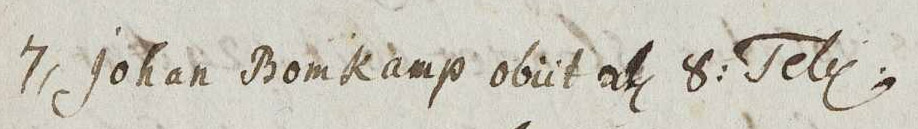 7, Johan Bomkamp obiit 8: Feb: